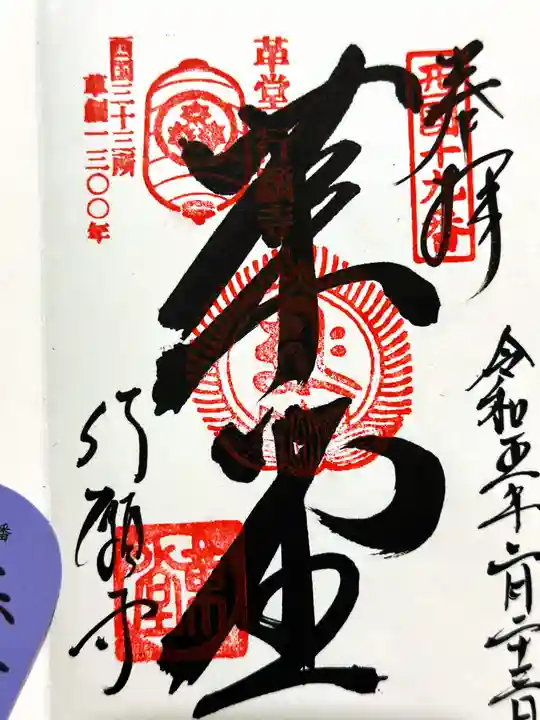 奉拝
西国十九番
令和五年二月二十三日
革堂
革堂 行願寺
西国三十三所
草創一三〇〇年
行願寺
革堂
番